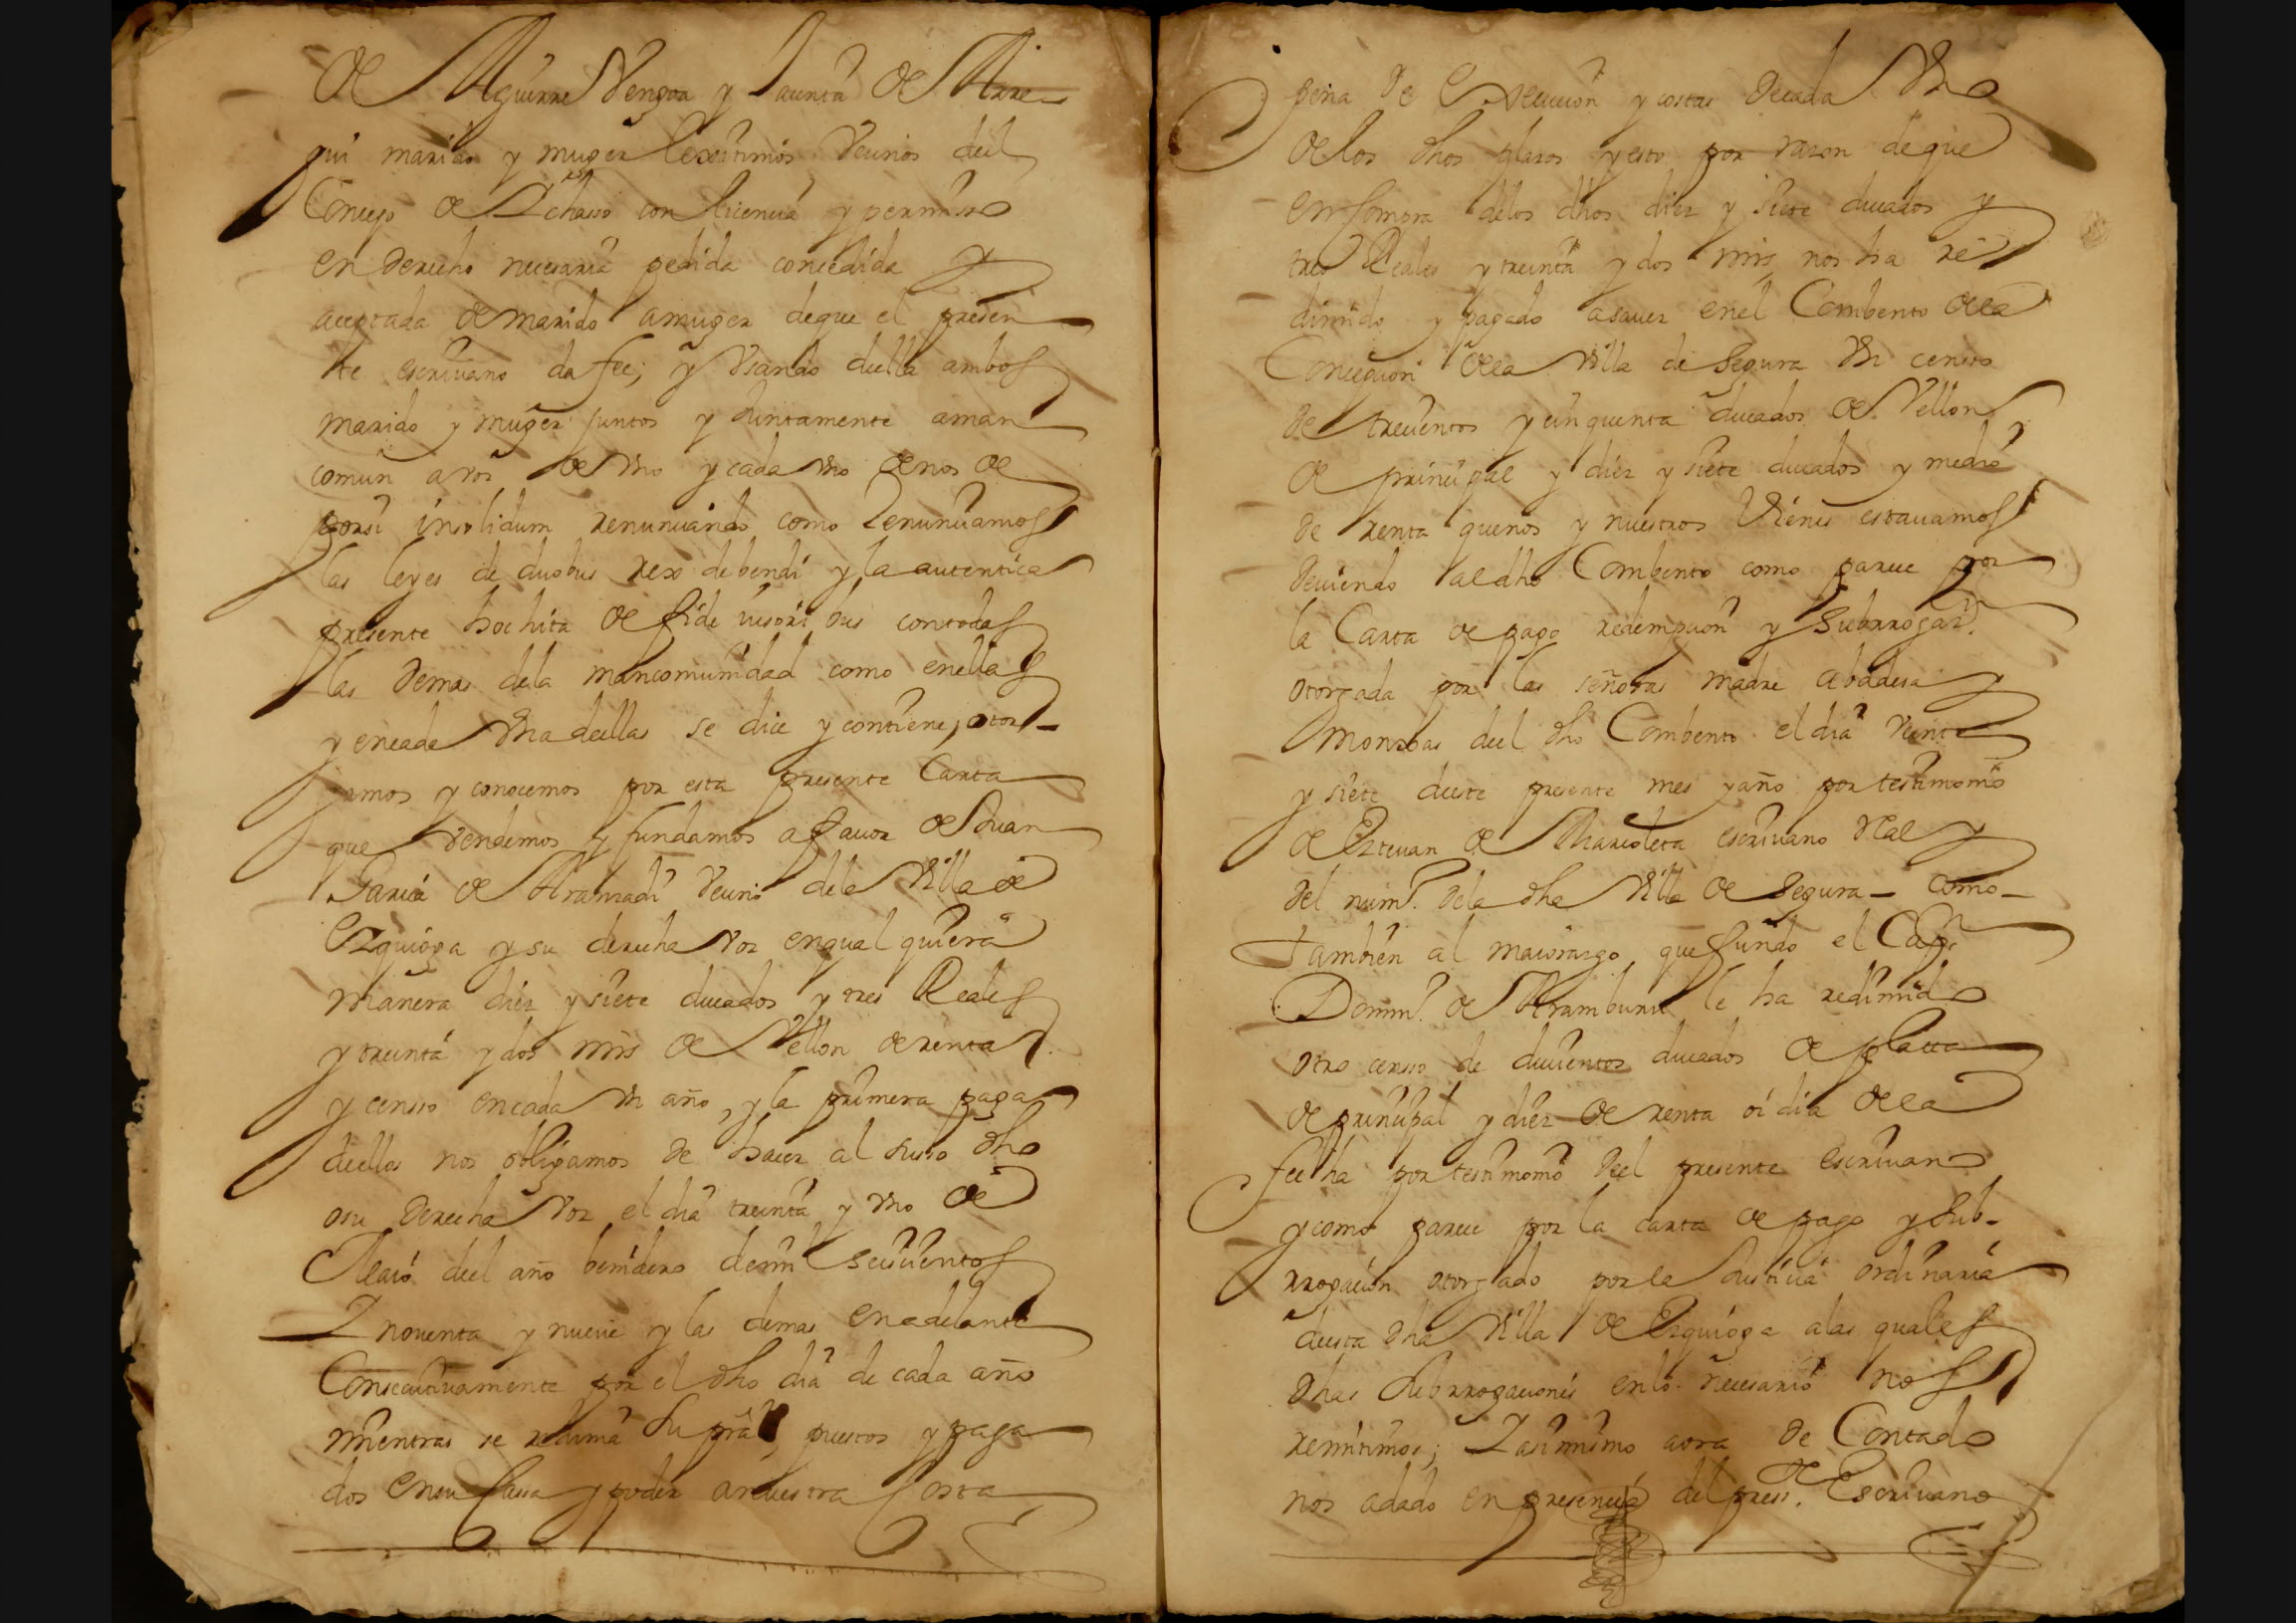 de Aguirre Vengoa y Jacinta de Arre
gui marido y muger lexitimos Vecinos deel
Concejo de Ichasso con licencia y permisso
en derecho necesaria pedida concedida y
aceptada de marido a muger de que el presen
te escriuano da fee; y Vsando deella ambos
marido y muger juntos y Juntamente aman
comun a vos de Vno y cada vno de nos de
por si insolidum renunciando como Renunciamos
las leyes de duobus rex debendi y la autentica
presente hochita de fide iusoribus con todas
las demas dela mancomunidad como en ellas
y en cada Vna deellas se dice y contiene, otor
gamos y conocemos por esta presente Carta
que vendemos y fundamos a fauor de Juan
Garcia de Alranadi Vecino dela Villa de
Ezquioga y su derecha Voz en qual quiera
manera diez y siete ducados y tres Reales
y treinta y dos mrs de Vellon de renta
y censso en cada vn año, y la primera paga
deellos nos obligamos de hacer al susso dho
o su derecha Voz el dia treinta y vno de
Maio deel año benidero de mil seiscientos
I nouenta y nueue y las demas en adelante
Consecutiuamente por el dho dia de cada año
mientras se redima Su pral, puestos y paga
dos en su Cassa y poder a nuestra Costa
pena de Execucion y costas de cada Vno
de los dhos plazos y esto por razon de que
en compra delos dhos diez y siete ducados y
tres Reales y treinta y dos mrs nos ha re
dimido y pagado a sauer en el Combento de la
Concepcion de la Villa de Segura Vn censso
de trecientos y cinquenta ducados de Vellon
de principal y diez y siete ducados y medio
de renta que nos y nuestros Vienes estauamos
deuiendo al dho Combento como parece por
la Carta de pago redempcion y Subrrogaon.
otorgada por las señoras madre Abadesa y
Monxas deel dho Combento el dia Veinte
y siete deeste presente mes y año por testimonio
de Esteuan de Marcoleta escriuano Real y
del numo. dela dha Villa de Segura como
tambien al maiorazgo que fundo el Capn.
Domin.o de Aramburu le ha redimido
otro censso de ducientos ducados de platta
de principal y diez de renta oi dia de la
fecha por testimonio deel presente escriuano
y como parece por la carta de pago y sub-
rrogacion otorgado por la Justicia ordinaria
deesta dha Villa de Ezquioga a las quales
dhas subrrogaciones en lo necesario nos
remitimos; I asimismo aora de Contado
nos a dado en presencia del press.te Escriuano